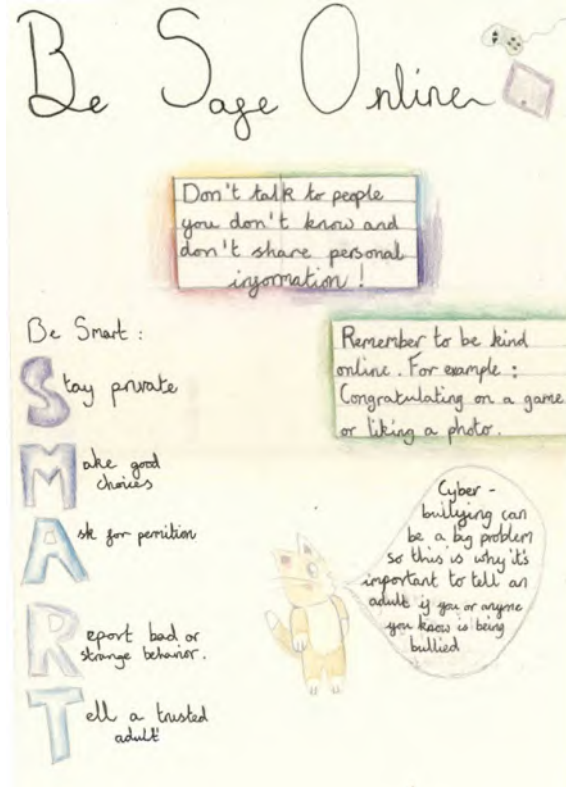 Be Safe Online
Don't talk to people
you don't know and
don't share personal
information !
Be Smart :
Stay private
Make good
choices
Ask for permition
Report bad or
strange behavior.
Tell a trusted
adult
Remember to be kind
online. For example :
Congratulating on a game
or liking a photo.
Cyber -
bullying can
be a big problem
so this is why it's
important to tell an
adult if you or anyone
you know is being
bullied